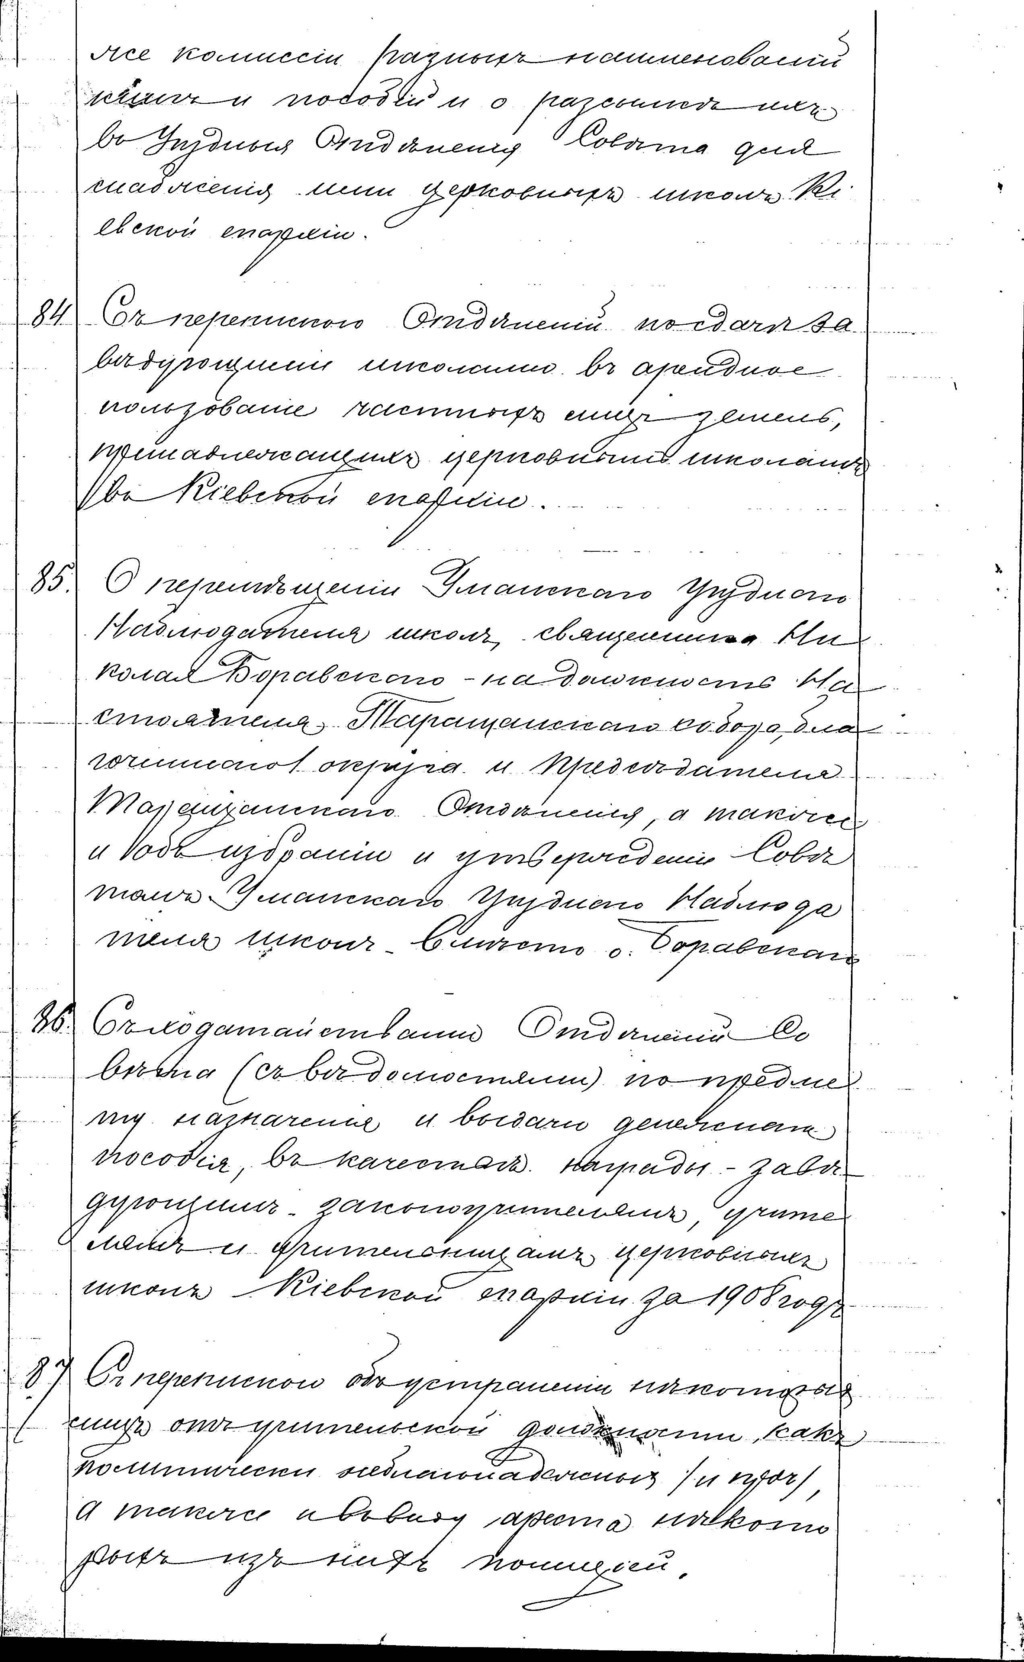 же комиссіи разныхъ наименованій
книгъ и пособій и о разсылкѣ ихъ
во Уѣздныя Отдѣленія Совѣта для
снабженія ими церковныхъ школъ Кі
евской епархіи.
84 Съ перепискою Отдѣленій по сдачѣ за
вѣдующими школами въ арендное
пользованіе частныхъ лицъ земель,
принадлежащихъ церковнымъ школамъ
въ Кіевской епархіи.
85. О перемѣщеніи Уманскаго Уѣзднаго
Наблюдателя школъ, священника Ни
колая Боравскаго - на должность На
стоятеля Таращанскаго собора, бла
гочиннаго I округа и Предсѣдателя
Таращанскаго Отдѣленія, а также
и объ избраніи и утвержденіи Совѣ
томъ Уманскаго Уѣзднаго Наблюда
теля школъ - вмѣсто о. Боравскаго
86. Съ ходатайствами Отдѣленій Со
вѣта (съ вѣдомостями) по предме
ту назначенія и выдачи денежнаго
пособія, въ качествѣ награды - завѣ
дующимъ - законоучителямъ, учите
лямъ и учительницамъ церковныхъ
школъ Кіевской епархіи за 1908 годъ
87 Съ перепискою объ устраненіи нѣкоторыхъ
лицъ отъ учительской должности, какъ
политически неблагонадежныхъ /и проч/,
а также и ввиду ареста нѣкото
рыхъ изъ нихъ полиціей.